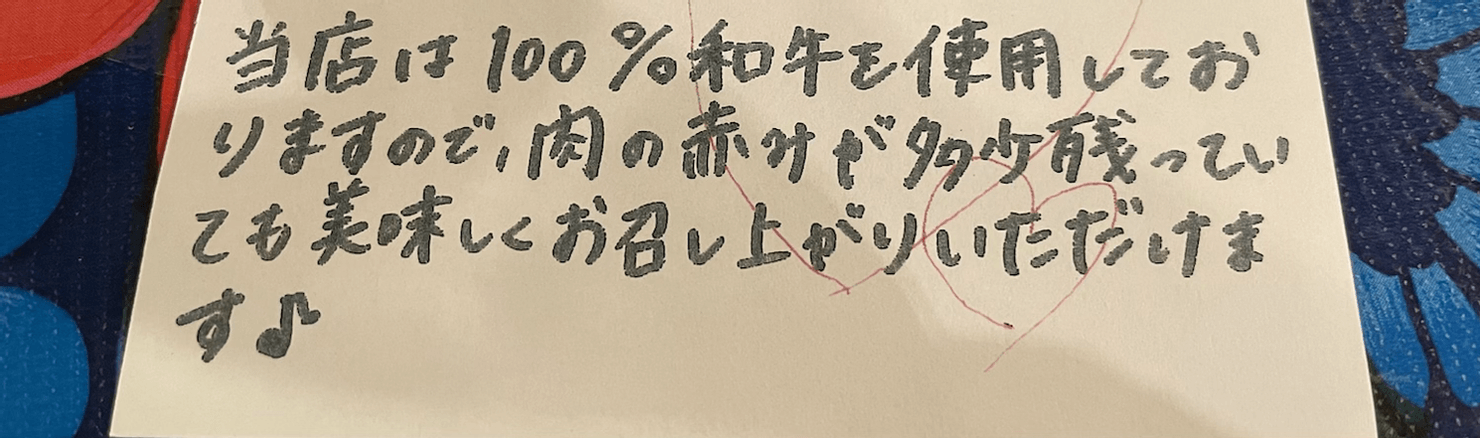 当店は100%和牛を使用してお
りますので、肉の赤みが多少残ってい
ても美味しくお召し上がりいただけま
す♪